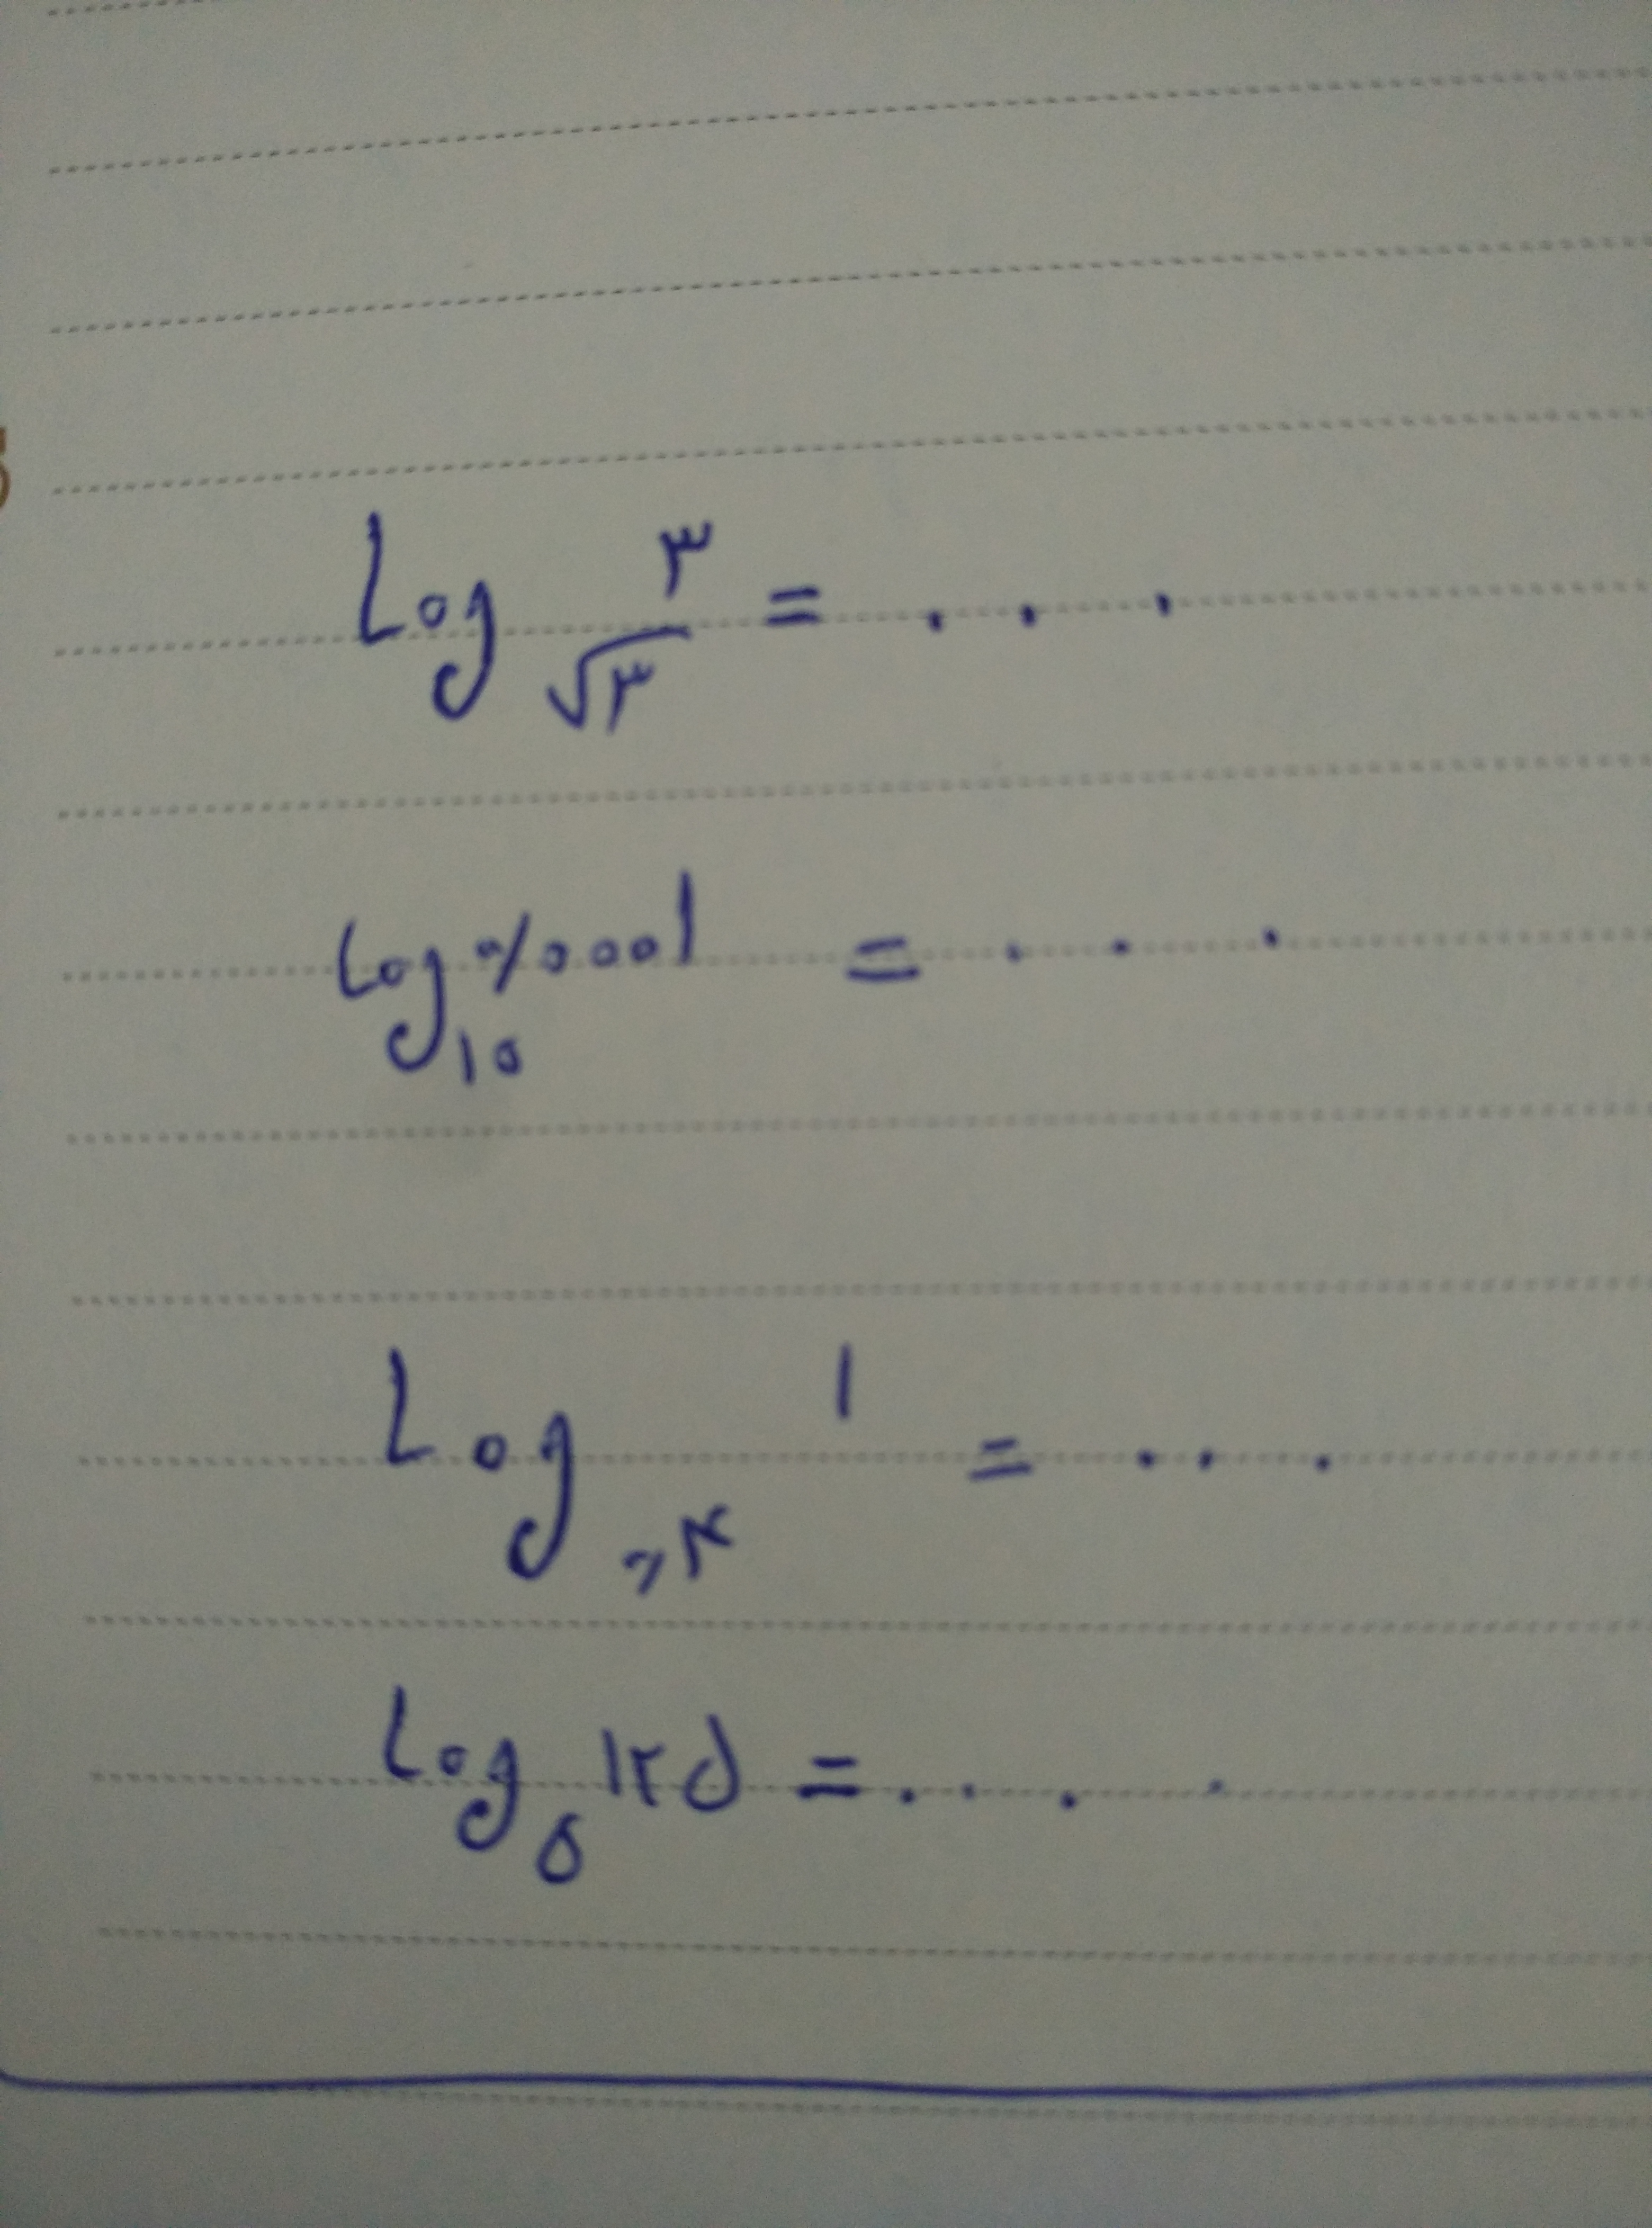 Log √۳ ۳ = . . .
Log ۱۰ ۰/۰۰۰۱ = . . .
Log ۱ = . . .
Log ۵ ۱۲۵ = . . . .